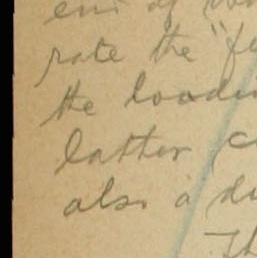 of
rate the "fe
the loadin
latter c
also a di
Th